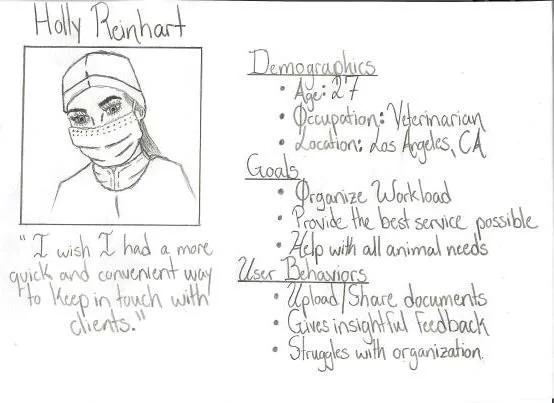 Holly Reinhart
Demographics
• Age: 27
• Occupation: Veterinarian
• Location: Los Angeles, CA
Goals
• Organize Workload
• Provide the best service possible
• Help with all animal needs
User Behaviors
• Upload/Share documents
• Gives insightful Feedback
• Struggles with organization.
"I wish I had a more
quick and convenient way
to keep in touch with
clients."